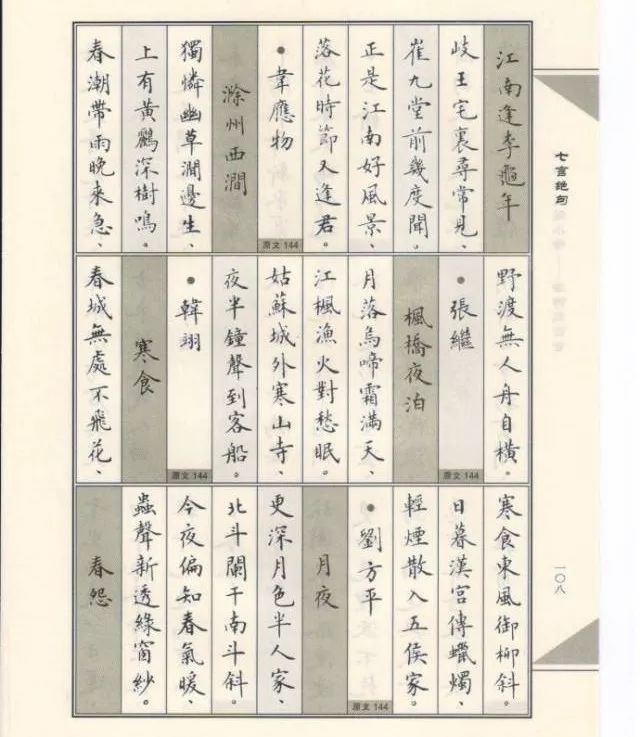 七言绝句
一〇八
江南逢李龜年
岐王宅裏尋常見、
崔九堂前幾度聞。
正是江南好風景、
落花時節又逢君。
• 韋應物
原文 144
滁州西澗
獨憐幽草澗邊生、
上有黃鸝深樹鳴。
春潮帶雨晚來急、
野渡無人舟自橫。
• 張繼
原文 144
楓橋夜泊
月落烏啼霜滿天、
江楓漁火對愁眠。
姑蘇城外寒山寺、
夜半鐘聲到客船。
• 韓翃
原文 144
寒食
春城無處不飛花、
寒食東風御柳斜。
日暮漢宮傳蠟燭、
輕煙散入五侯家。
• 劉方平
原文 144
月夜
更深月色半人家、
北斗闌干南斗斜。
今夜偏知春氣暖、
蟲聲新透綠窗紗。
春怨